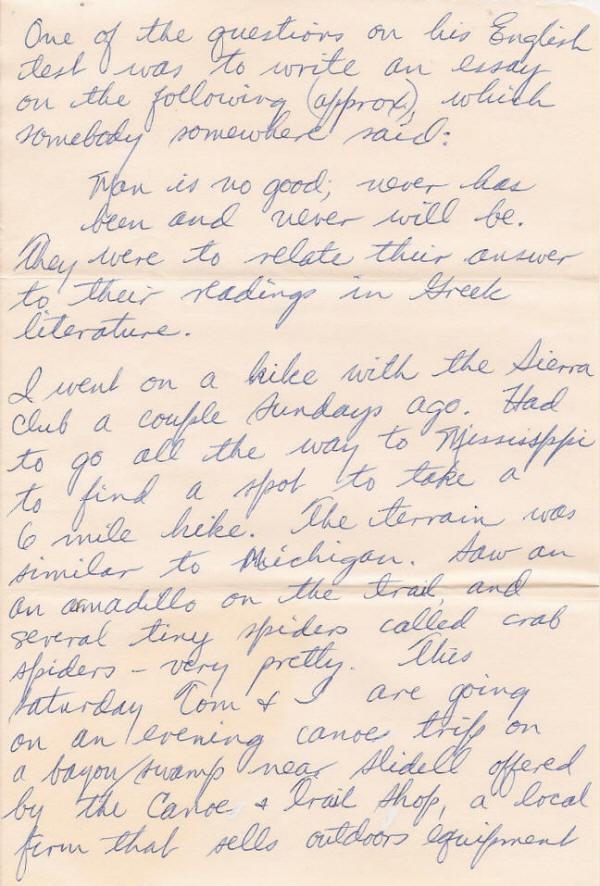 One of the questions on his English
test was to write an essay
on the following (approx), which
somebody somewhere said:
Man is no good; never has
been and never will be.
They were to relate their answer
to their readings in Greek
literature.
I went on a hike with the Sierra
Club a couple Sundays ago. Had
to go all the way to Mississppi
to find a spot to take a
6 mile hike. The terrain was
similar to Michigan. Saw an
an armadillo on the trail, and
several tiny spiders called crab
spiders - very pretty. This
Saturday Tom & I are going
on an evening canoe trip on
a bayou/swamp near Slidell offered
by the Canoe & Trail Shop, a local
firm that sells outdoors equipment